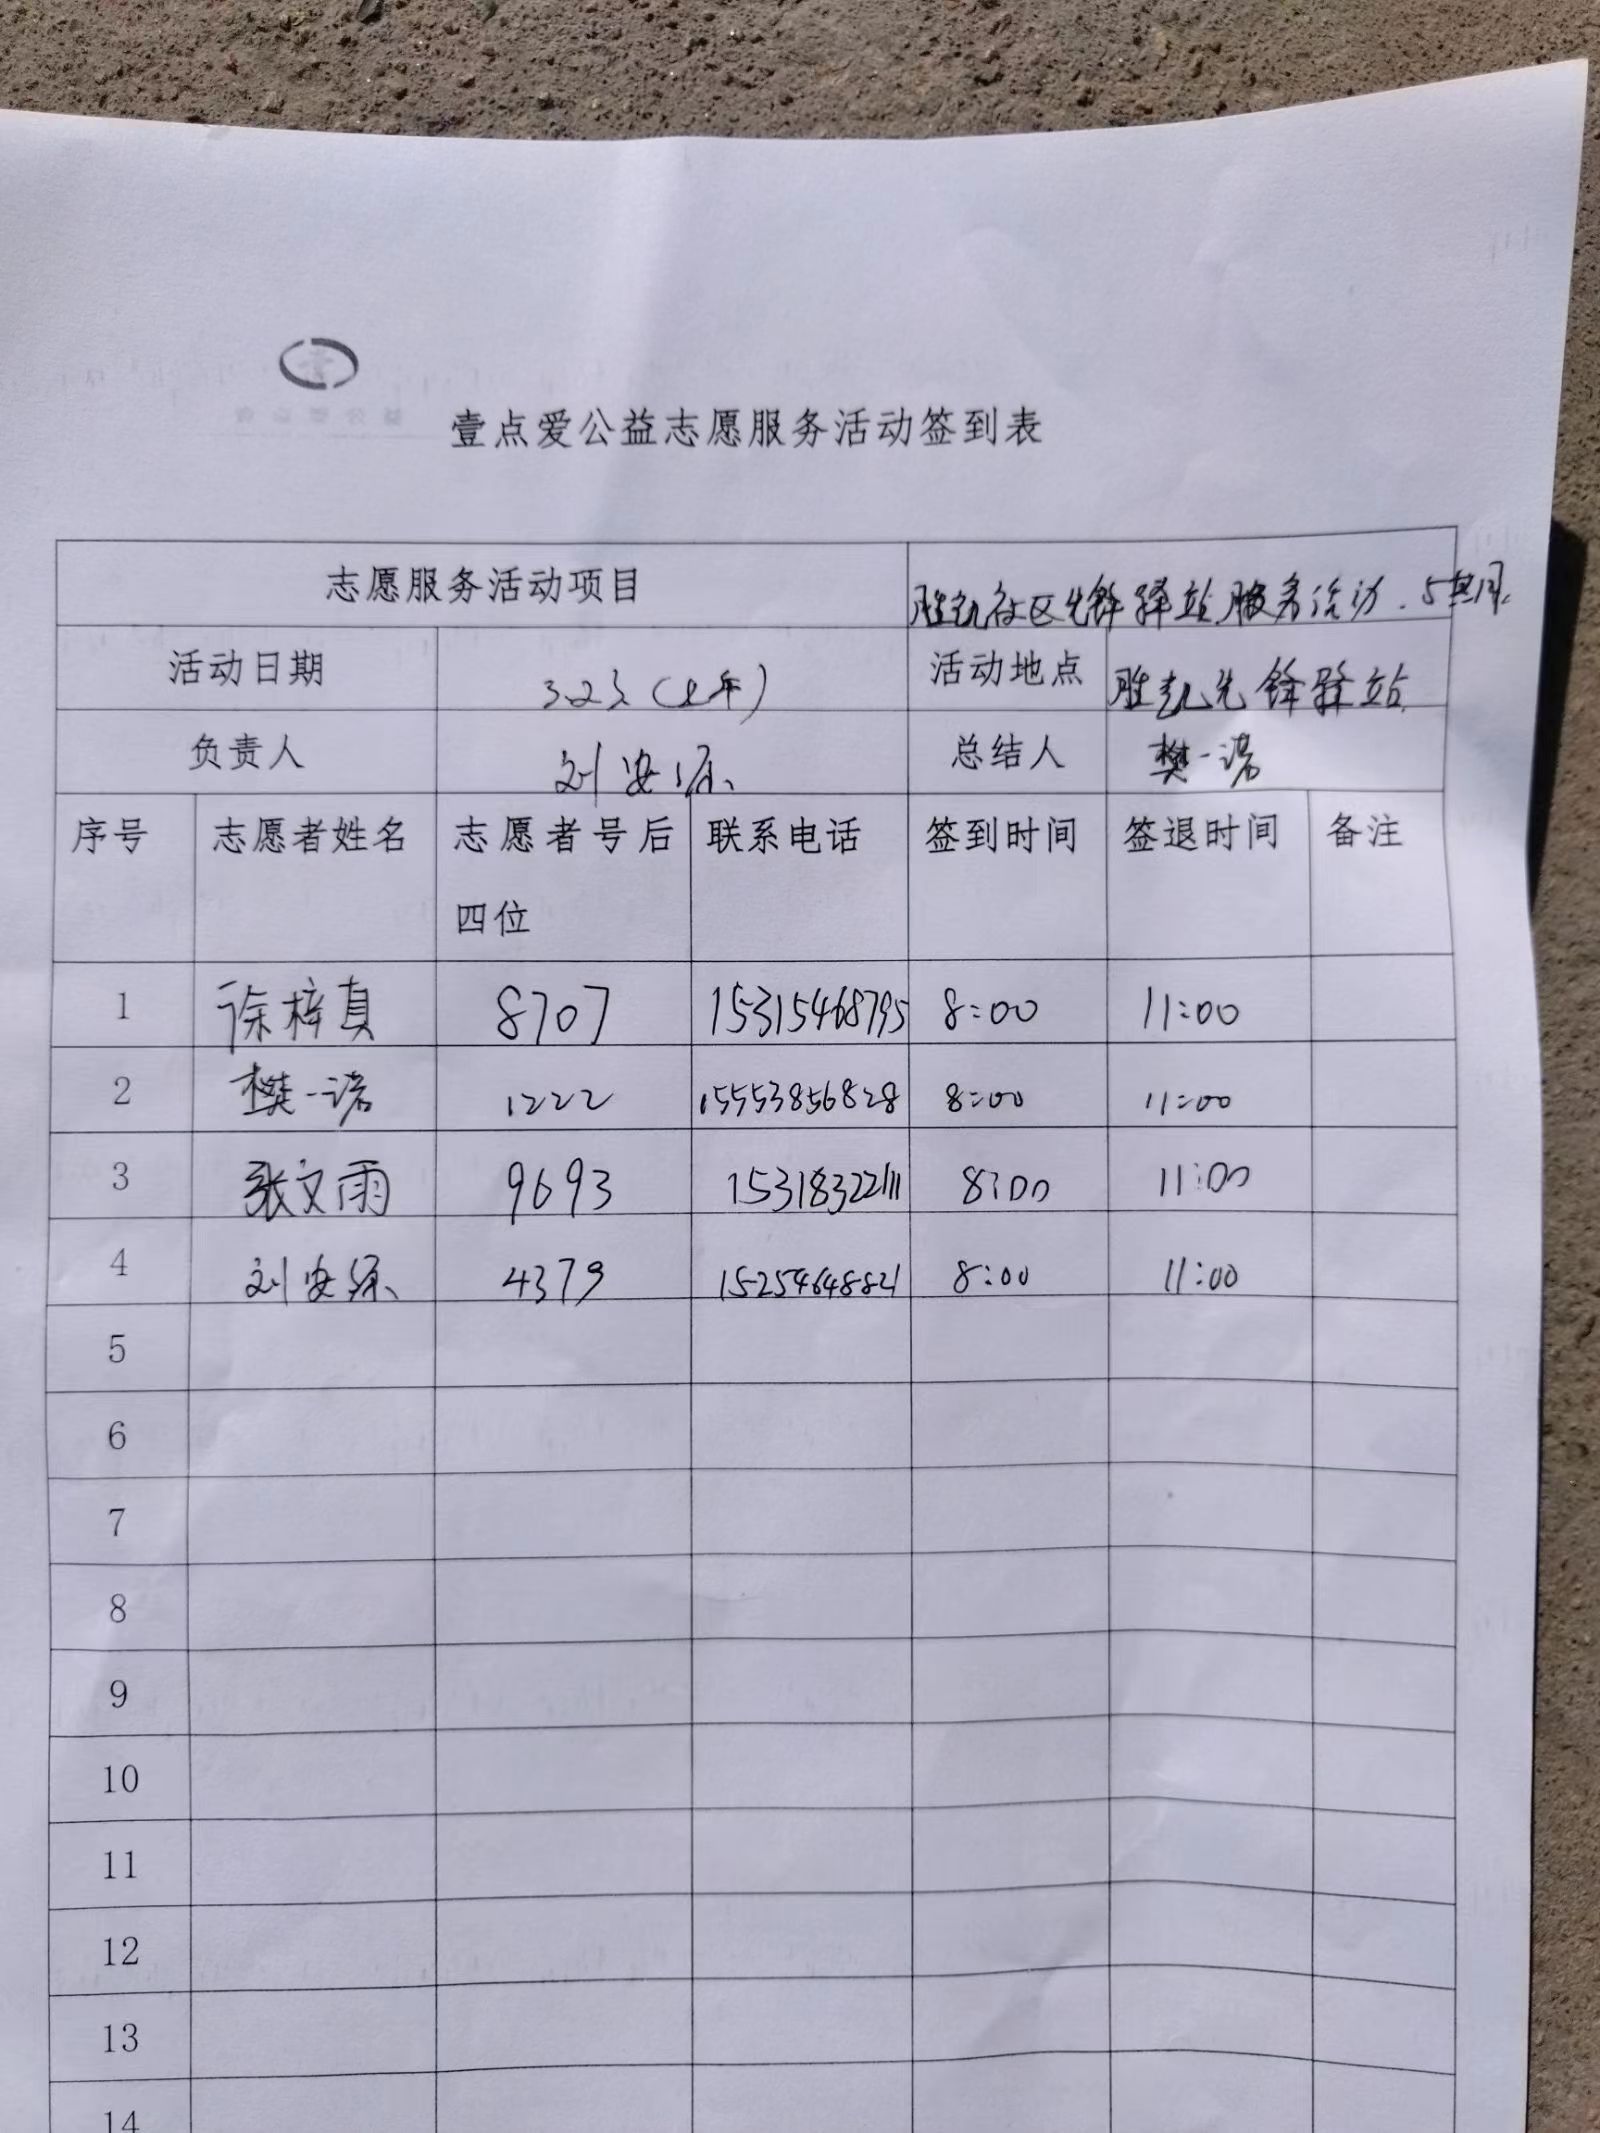 壹点爱公益志愿服务活动签到表
志愿服务活动项目 胜凯社区先锋驿站服务活动.
活动日期 3.23(上午) 活动地点 胜凯先锋驿站
负责人 刘安源 总结人 樊一诺
序号 志愿者姓名 志愿者号后四位 联系电话 签到时间 签退时间 备注
1 徐梓真 8707 15315468795 8:00 11:00
2 樊一诺 1222 15553856828 8:00 11:00
3 张文雨 9693 15318322111 8:00 11:00
4 刘安源 4379 15254648821 8:00 11:00
5
6
7
8
9
10
11
12
13
14